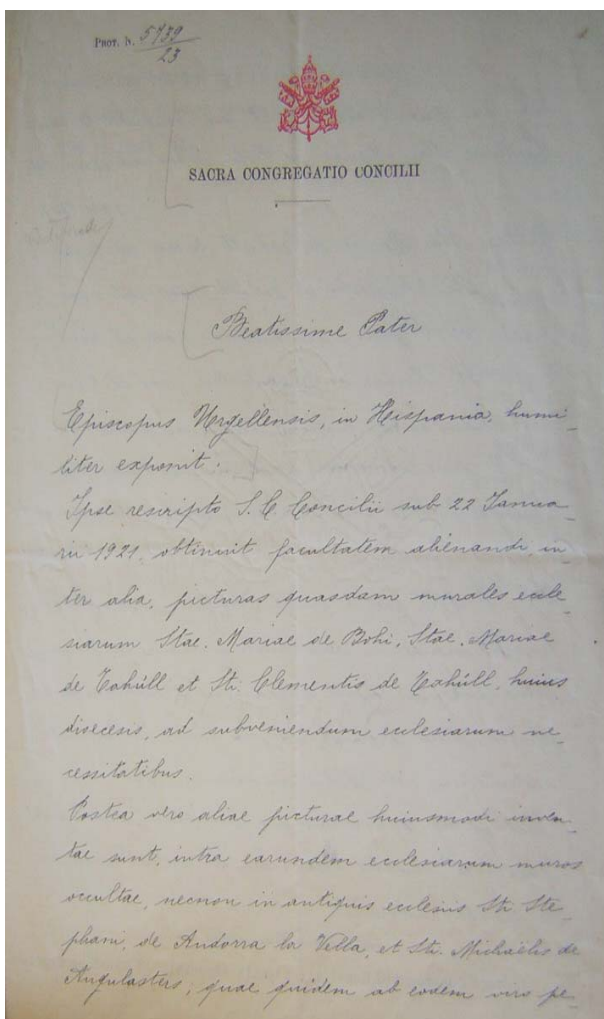 PROT. N. 5739/23
SACRA CONGREGATIO CONCILII
Beatissime Pater
Episcopus Urgellensis, in Hispania, humi-
liter exponit:
Ipse rescripto S. C. Concilii sub 22 Janua-
rii 1921, obtinuit facultatem alienandi, in-
ter alia, picturas quasdam murales eccle-
siarum Stae. Mariae de Bohi, Stae. Mariae
de Tahüll et Sti. Clementis de Tahüll, huius
dioecesis, ad subveniendum ecclesiarum ne-
cessitatibus.
Postea vero aliae picturae huiusmodi inven-
tae sunt, intra earundem ecclesiarum muros
occultae, necnon in antiquis ecclesiis Sti. Ste-
phani, de Andorra la Vella, et Sti. Michaëlis de
Angulasters, quae quidem ab eodem viro pe-